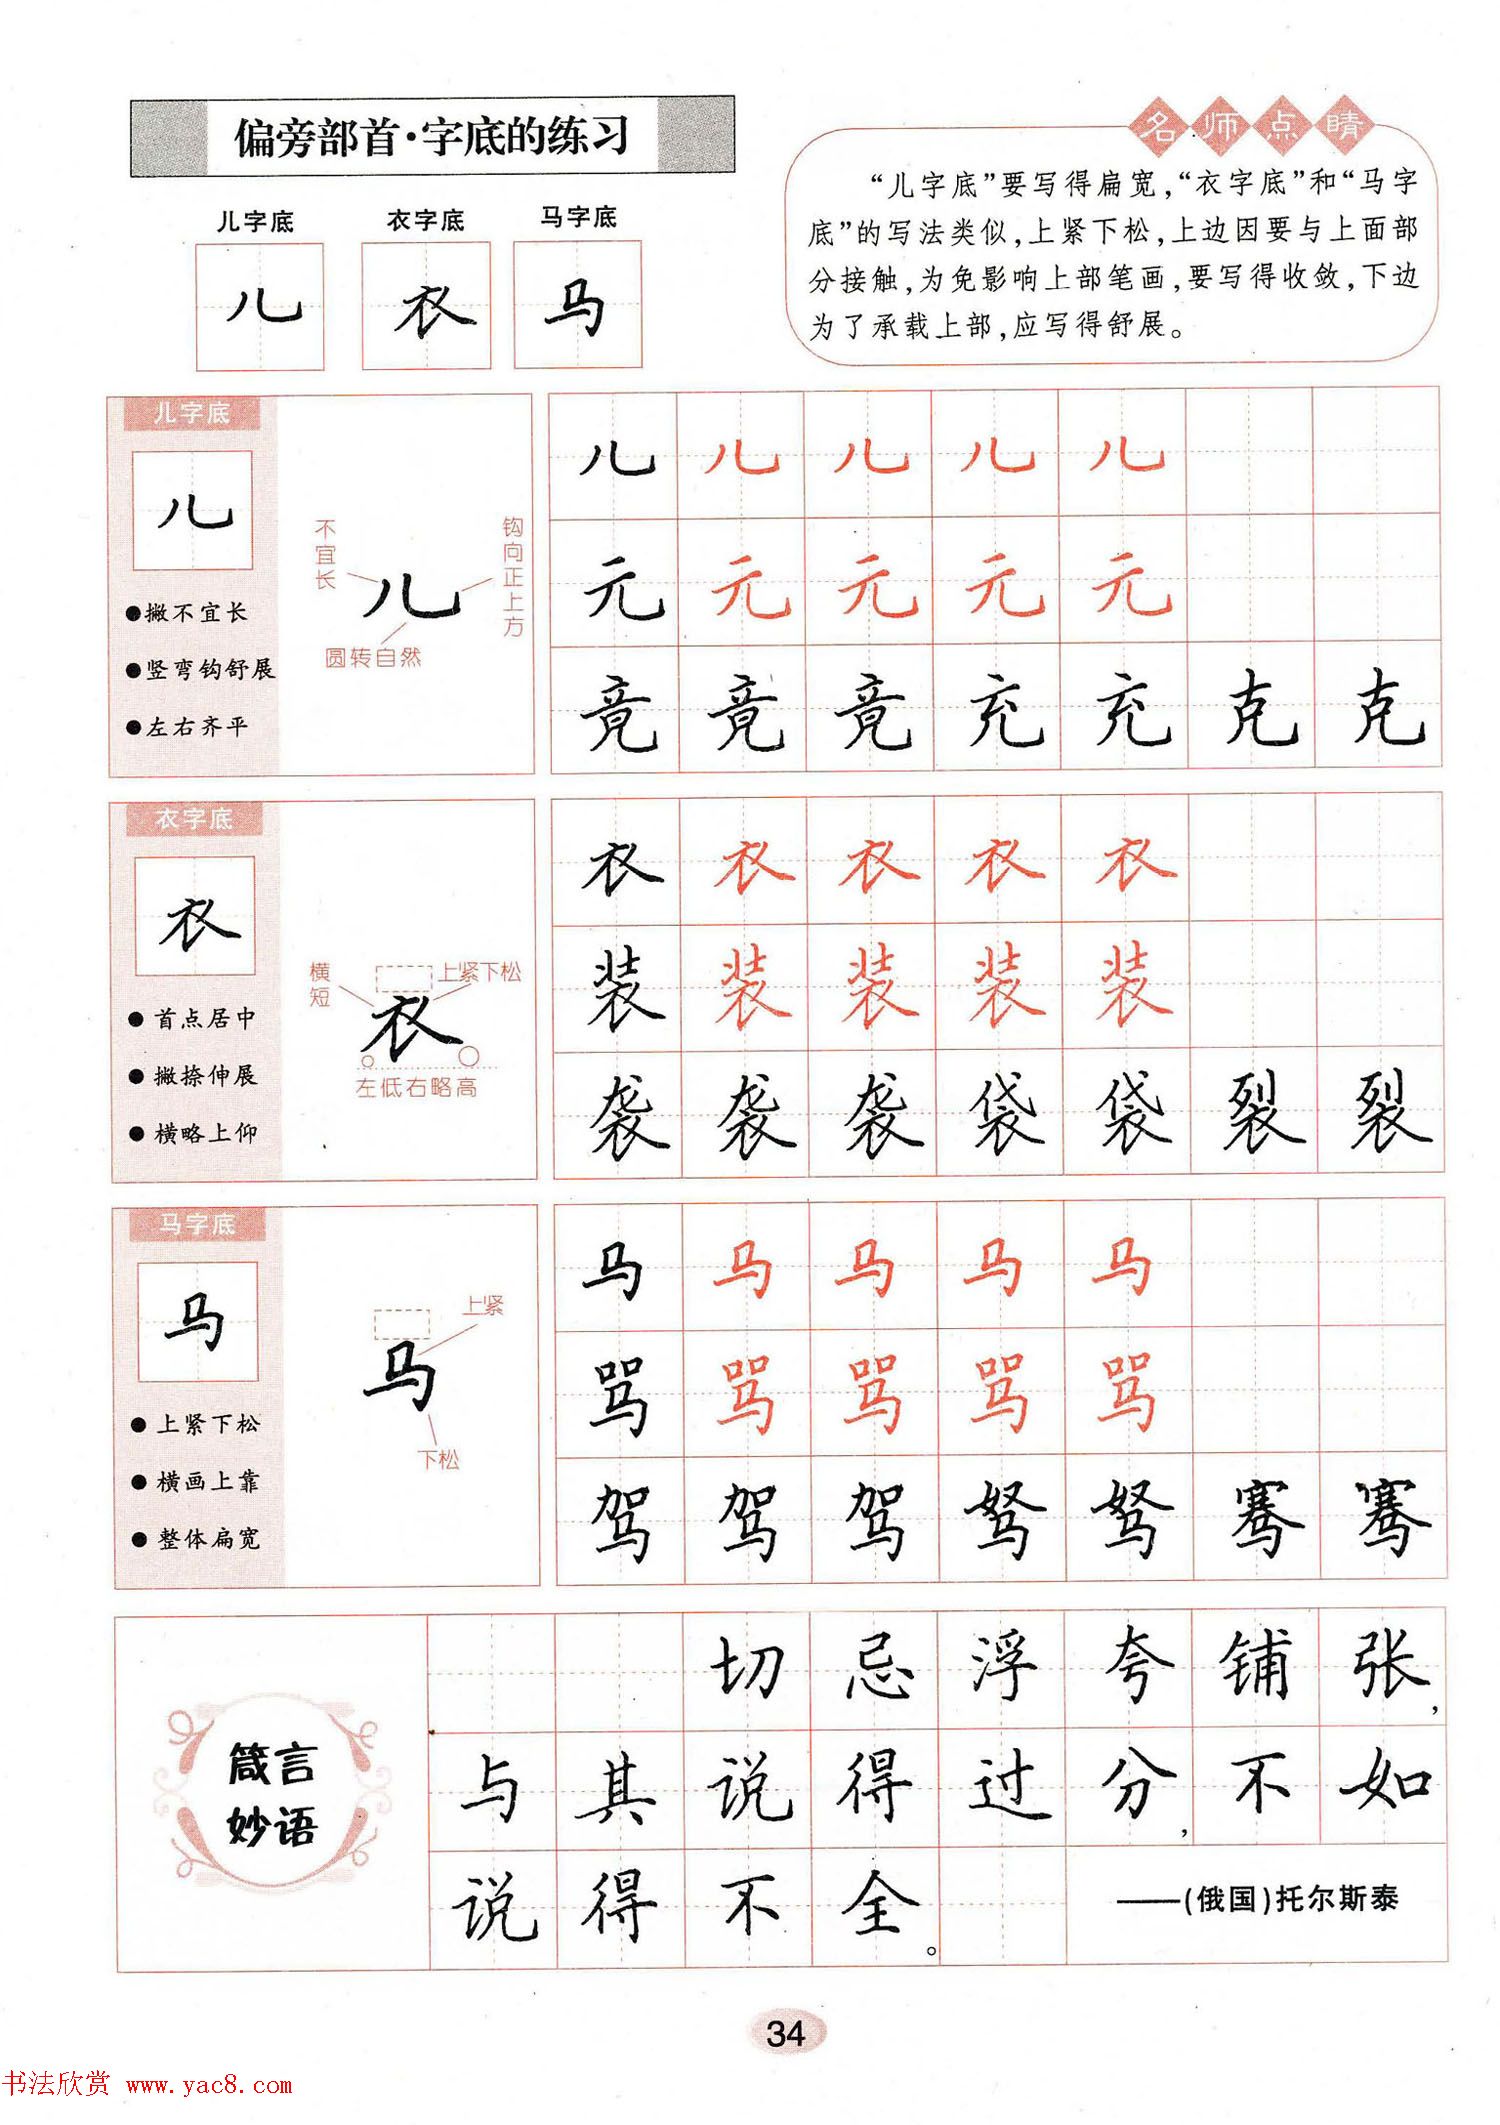 偏旁部首·字底的练习
名师点睛
“儿字底”要写得扁宽,“衣字底”和“马字
底”的写法类似,上紧下松,上边因要与上面部
分接触,为免影响上部笔画,要写得收敛,下边
为了承载上部,应写得舒展。
儿字底 衣字底 马字底
儿 衣 马
儿字底
儿
●撇不宜长
●竖弯钩舒展
●左右齐平
不宜长
钩向正上方
儿
圆转自然
儿 儿 儿 儿 儿
元 元 元 元 元
竟 竟 竟 充 充 克 克
衣字底
衣
●首点居中
●撇捺伸展
●横略上仰
横短
上紧下松
衣
左低右略高
衣 衣 衣 衣 衣
装 装 装 装 装
袭 袭 袭 袋 袋 裂 裂
马字底
马
●上紧下松
●横画上靠
●整体扁宽
上紧
马
下松
马 马 马 马 马
骂 骂 骂 骂 骂
驾 驾 驾 驽 驽 骞 骞
箴言
妙语
切忌浮夸铺张,
与其说得过分,不如
说得不全。
——(俄国)托尔斯泰
34
书法欣赏 www.yac8.com